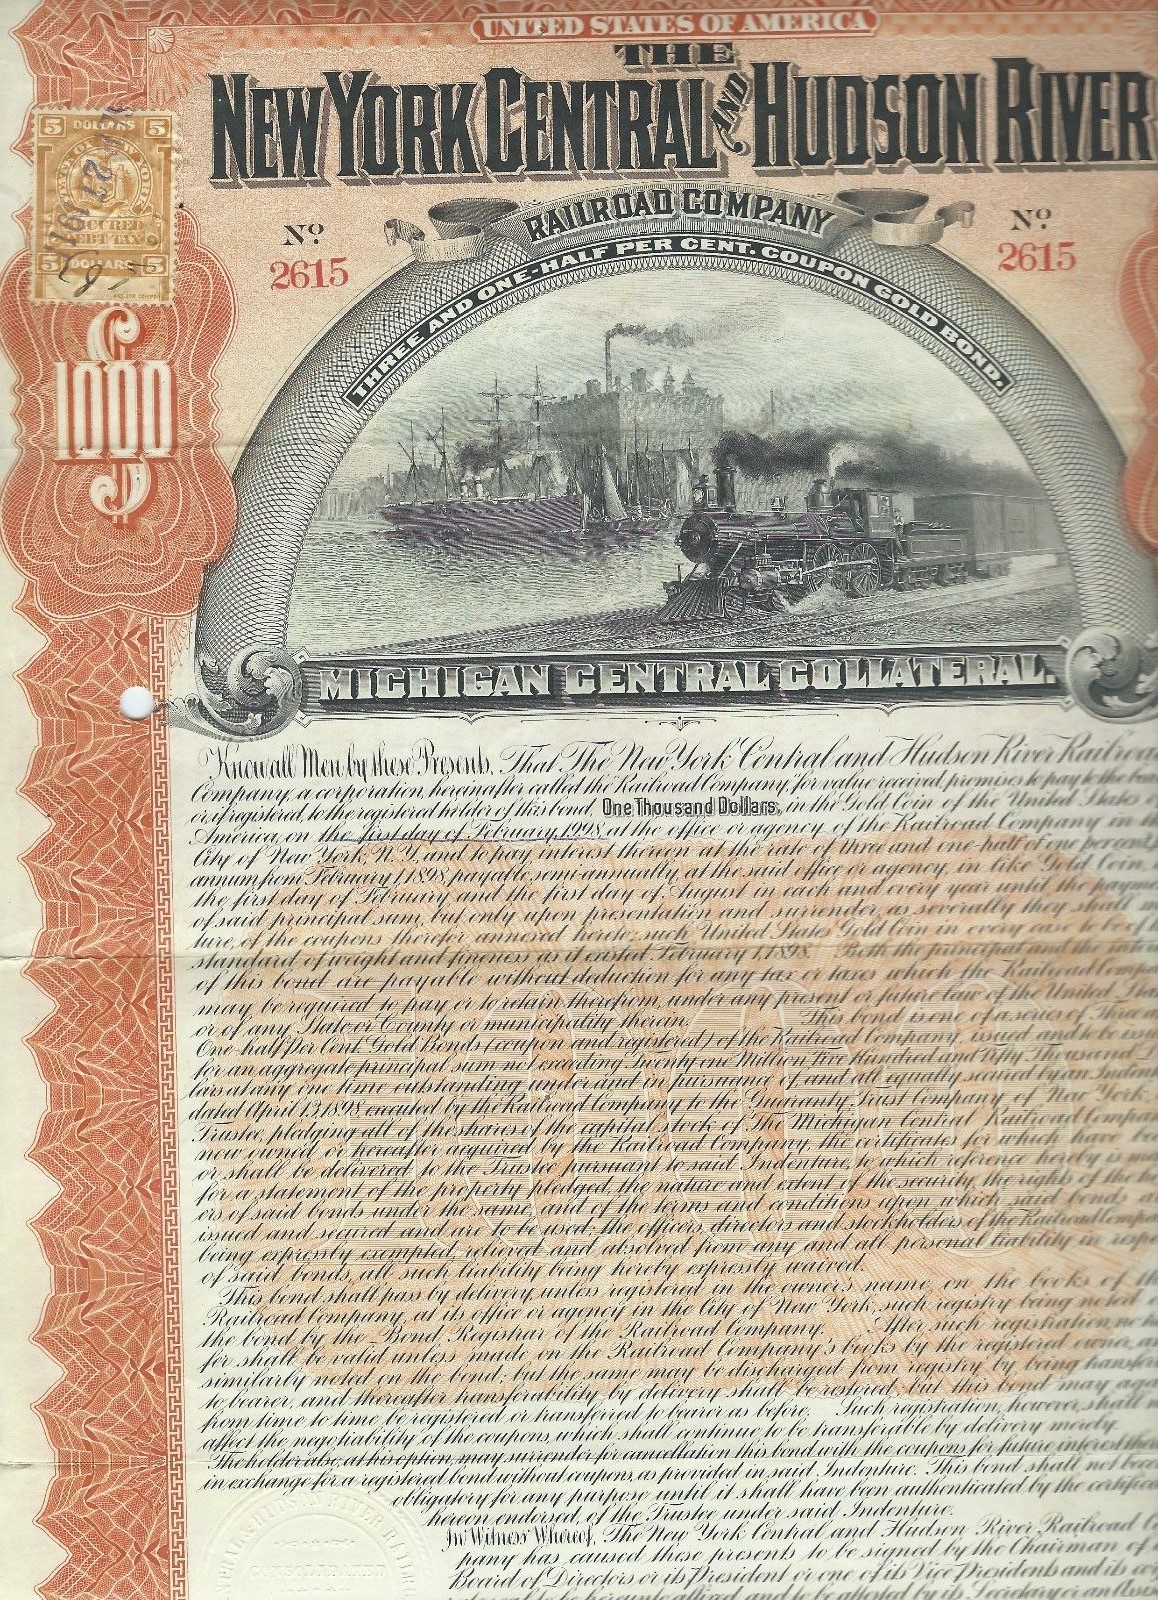 UNITED STATES OF AMERICA
THE
NEW YORK CENTRAL AND HUDSON RIVER
RAILROAD COMPANY
THREE AND ONE-HALF PER CENT. COUPON GOLD BOND.
5 DOLLARS 5
STATE OF NEW YORK
SECURED
DEBT TAX
5 DOLLARS 5
27 191
No.
2615
No.
2615
$1000
MICHIGAN CENTRAL COLLATERAL.
Know all Men by these Presents, That The New York Central and Hudson River Railroad
Company, a corporation, hereinafter called the Railroad Company, for value received, promises to pay to the
or, if registered, to the registered holder of this bond, One Thousand Dollars, in the Gold Coin of the United States of
America, on the first day of February, 1998, at the office or agency of the Railroad Company in the
City of New York, N.Y., and to pay interest thereon at the rate of three and one-half of one per cent.
annum from February 1, 1898, payable semi-annually, at the said office or agency, in like Gold Coin,
the first day of February and the first day of August in each and every year until the payme
of said principal sum, but only upon presentation and surrender, as severally they shall ma
ture, of the coupons therefor annexed hereto; such United States Gold Coin in every case to be of
standard of weight and fineness as it existed February 1, 1898. Both the principal and the
of this bond are payable without deduction for any tax or taxes which the Railroad Compa
may be required to pay or to retain therefrom, under any present or future law of the United Sta
or of any State or County or municipality therein. This bond is one of a series of Three an
One-half Per Cent. Gold Bonds (coupon and registered) of the Railroad Company, issued and to be issu
for an aggregate principal sum not exceeding Twenty one Million Five Hundred and Fifty Thousand
lars at any one time outstanding under and in pursuance of, and all equally secured by an Indent
dated April 13, 1898, executed by the Railroad Company to the Guaranty Trust Company of New York,
Trustee, pledging all of the shares of the capital stock of The Michigan Central Railroad Compan
now owned or hereafter acquired by the Railroad Company, the certificates for which have bee
or shall be delivered to the Trustee pursuant to said Indenture, to which reference hereby is ma
for a statement of the property pledged, the nature and extent of the security, the rights of the
ers of said bonds under the same, and of the terms and conditions upon which said bonds a
issued and secured and are to be used; the officers, directors and stockholders of the Railroad Compa
being expressly exempted, relieved and absolved from any and all personal liability in respe
of said bonds, all such liability being hereby expressly waived.
This bond shall pass by delivery, unless registered in the owner's name, on the books of th
Railroad Company, at its office or agency in the City of New York, such registry being noted o
the bond by the Bond Registrar of the Railroad Company. After such registration, no
fer shall be valid unless made on the Railroad Company's books by the registered owner, a
similarly noted on the bond; but the same may be discharged from registry by being transfer
to bearer, and thereafter transferability by delivery shall be restored; but this bond may aga
from time to time be registered or transferred to bearer as before. Such registration, however, shall n
affect the negotiability of the coupons, which shall continue to be transferable by delivery merely.
The holder also, at his option, may surrender for cancellation this bond with the coupons for future interest
in exchange for a registered bond without coupons, as provided in said Indenture. This bond shall not beco
obligatory for any purpose until it shall have been authenticated by the certifica
hereon endorsed, of the Trustee under said Indenture.
In Witness Whereof, The New York Central and Hudson River Railroad C
pany has caused these presents to be signed by the Chairman of
Board of Directors or its President or one of its Vice Presidents and its co
to be hereunto affixed and to be attested by its Secretary or an Assis
CENTRAL & HUDSON RIVER RAILROAD
CONSOLIDATED